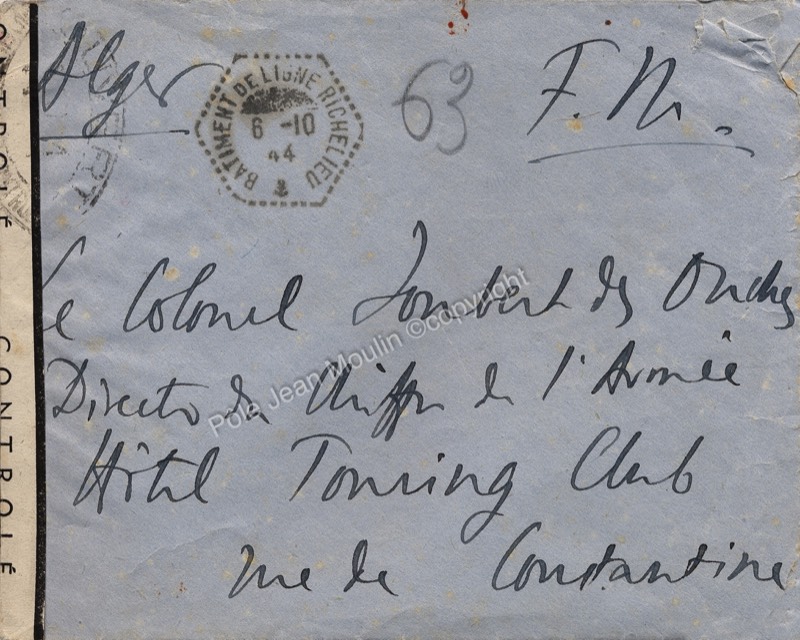 Alger
BATIMENT DE LIGNE RICHELIEU
6 -10
44
63
F. M.
Le Colonel Joubert des Ouches
Directr du Chiffre de l'Armée
Hôtel Touring Club
rue de Constantine
CONTROLÉ CONTROLÉ
Pole Jean Moulin ©copyright